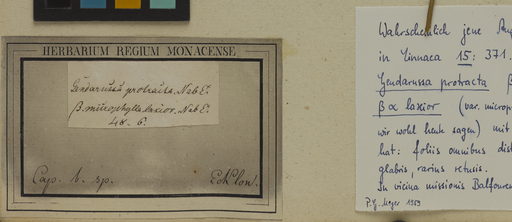 HERBARIUM REGIUM MONACENSE.
Gendarussa protracta. Nab E.
β. microphylla laxior. Nab E.
48. 6.
Cap. b. sp.
Ecklon.
Wahrscheinlich jene
in Linnaea 15: 371.
Gendarussa protracta β
β α laxior (var. microp
wir wohl heute sagen) mit
hat: foliis omnibus dist
glabris rarius retusis.
In vicina missionis Balfour
P.G. Meyer 1959